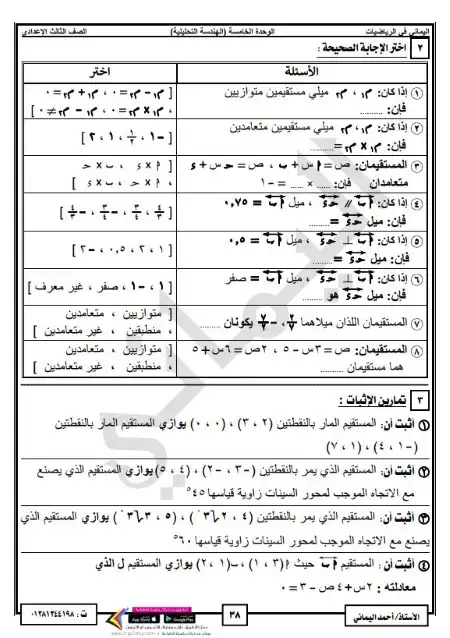 اليماني في الرياضيات
الوحدة الخامسة (الهندسة التحليلية)
الصف الثالث الإعدادي
٢ اختر الإجابة الصحيحة :
الأسئلة
اختر
① إذا كان: م١ ، م٢ ميلي مستقيمين متوازيين
فإن: ..........
[ م١ - م٢ = ٠ ، م١ + م٢ = ٠
، م١ × م٢ = ٠ ، م١ - م٢ ≠ ٠ ]
② إذا كان: م١ ، م٢ ميلي مستقيمين متعامدين
م١ × م٢ = ..........
[ -١ ، ١/٢ ، ١ ، ٢ ]
③ المستقيمان: ص = أ س + ب ، ص = حـ س + ء
متعامدان فإن: ...... × ...... = -١
[ أ × ء ، ب × حـ
، أ × حـ ، ب × ء ]
④ إذا كان: أب // حـء ، ميل أب = ٠,٧٥
فإن: ميل حـء = ..........
[ ٤/٣ ، ٣/٤ ، -٣/٤ ، -٤/٣ ]
⑤ إذا كان: أب ⊥ حـء ، ميل أب = ٠,٥
فإن: ميل حـء = ..........
[ ١ ، ٢ ، ٠,٥ ، -٢ ]
⑥ إذا كان: أب ⊥ حـء ، ميل أب = صفر
فإن: ميل حـء هو ..........
[ ١ ، -١ ، صفر ، غير معرف ]
⑦ المستقيمان اللذان ميلاهما ٢/٧ ، -٧/٢ يكونان ..........
[ متوازيين ، متعامدين
، منطبقين ، غير متعامدين ]
⑧ المستقيمان: ص = ٣س - ٥ ، ٢ص = ٦س + ٥
هما مستقيمان ..........
[ متوازيين ، متعامدين
، منطبقين ، غير متعامدين ]
٣ تمارين الإثبات :
① أثبت أن: المستقيم المار بالنقطتين (٢ ، ٣) ، (٠ ، ٠) يوازي المستقيم المار بالنقطتين
(-١ ، ٤) ، (١ ، ٧)
② أثبت أن: المستقيم الذي يمر بالنقطتين (-٣ ، -٢) ، (٤ ، ٥) يوازي المستقيم الذي يصنع
مع الاتجاه الموجب لمحور السينات زاوية قياسها ٤٥°
③ أثبت أن: المستقيم الذي يمر بالنقطتين (٤ ، ٢√٣) ، (٥ ، ٣√٣) يوازي المستقيم الذي
يصنع مع الاتجاه الموجب لمحور السينات زاوية قياسها ٦٠°
④ أثبت أن: المستقيم أب حيث أ(٣ ، ١) ، ب(١ ، ٢) يوازي المستقيم ل الذي
معادلته : ٢س + ٤ص - ٣ = ٠
الأستاذ/ أحمد اليماني
٣٨
ت : ٠١٢٨١٢٤٤١٩٨